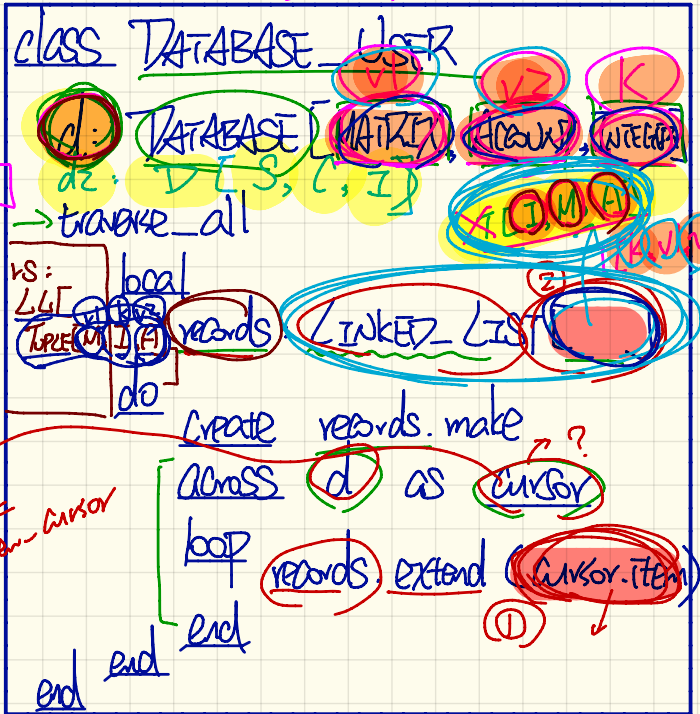 class DATABASE_USER
V1 V2 K
d: DATABASE[MATRIX, ACCOUNT, INTEGER]
d2: D[S, C, I]
I, M, A
→ traverse_all
rs:
local
V1 K V2
TUPLE[M I A]
records: LINKED_LIST[ ]
②
do
create records.make
across d as cursor ?
cursor
loop
records.extend (cursor.item)
①
end
end
end